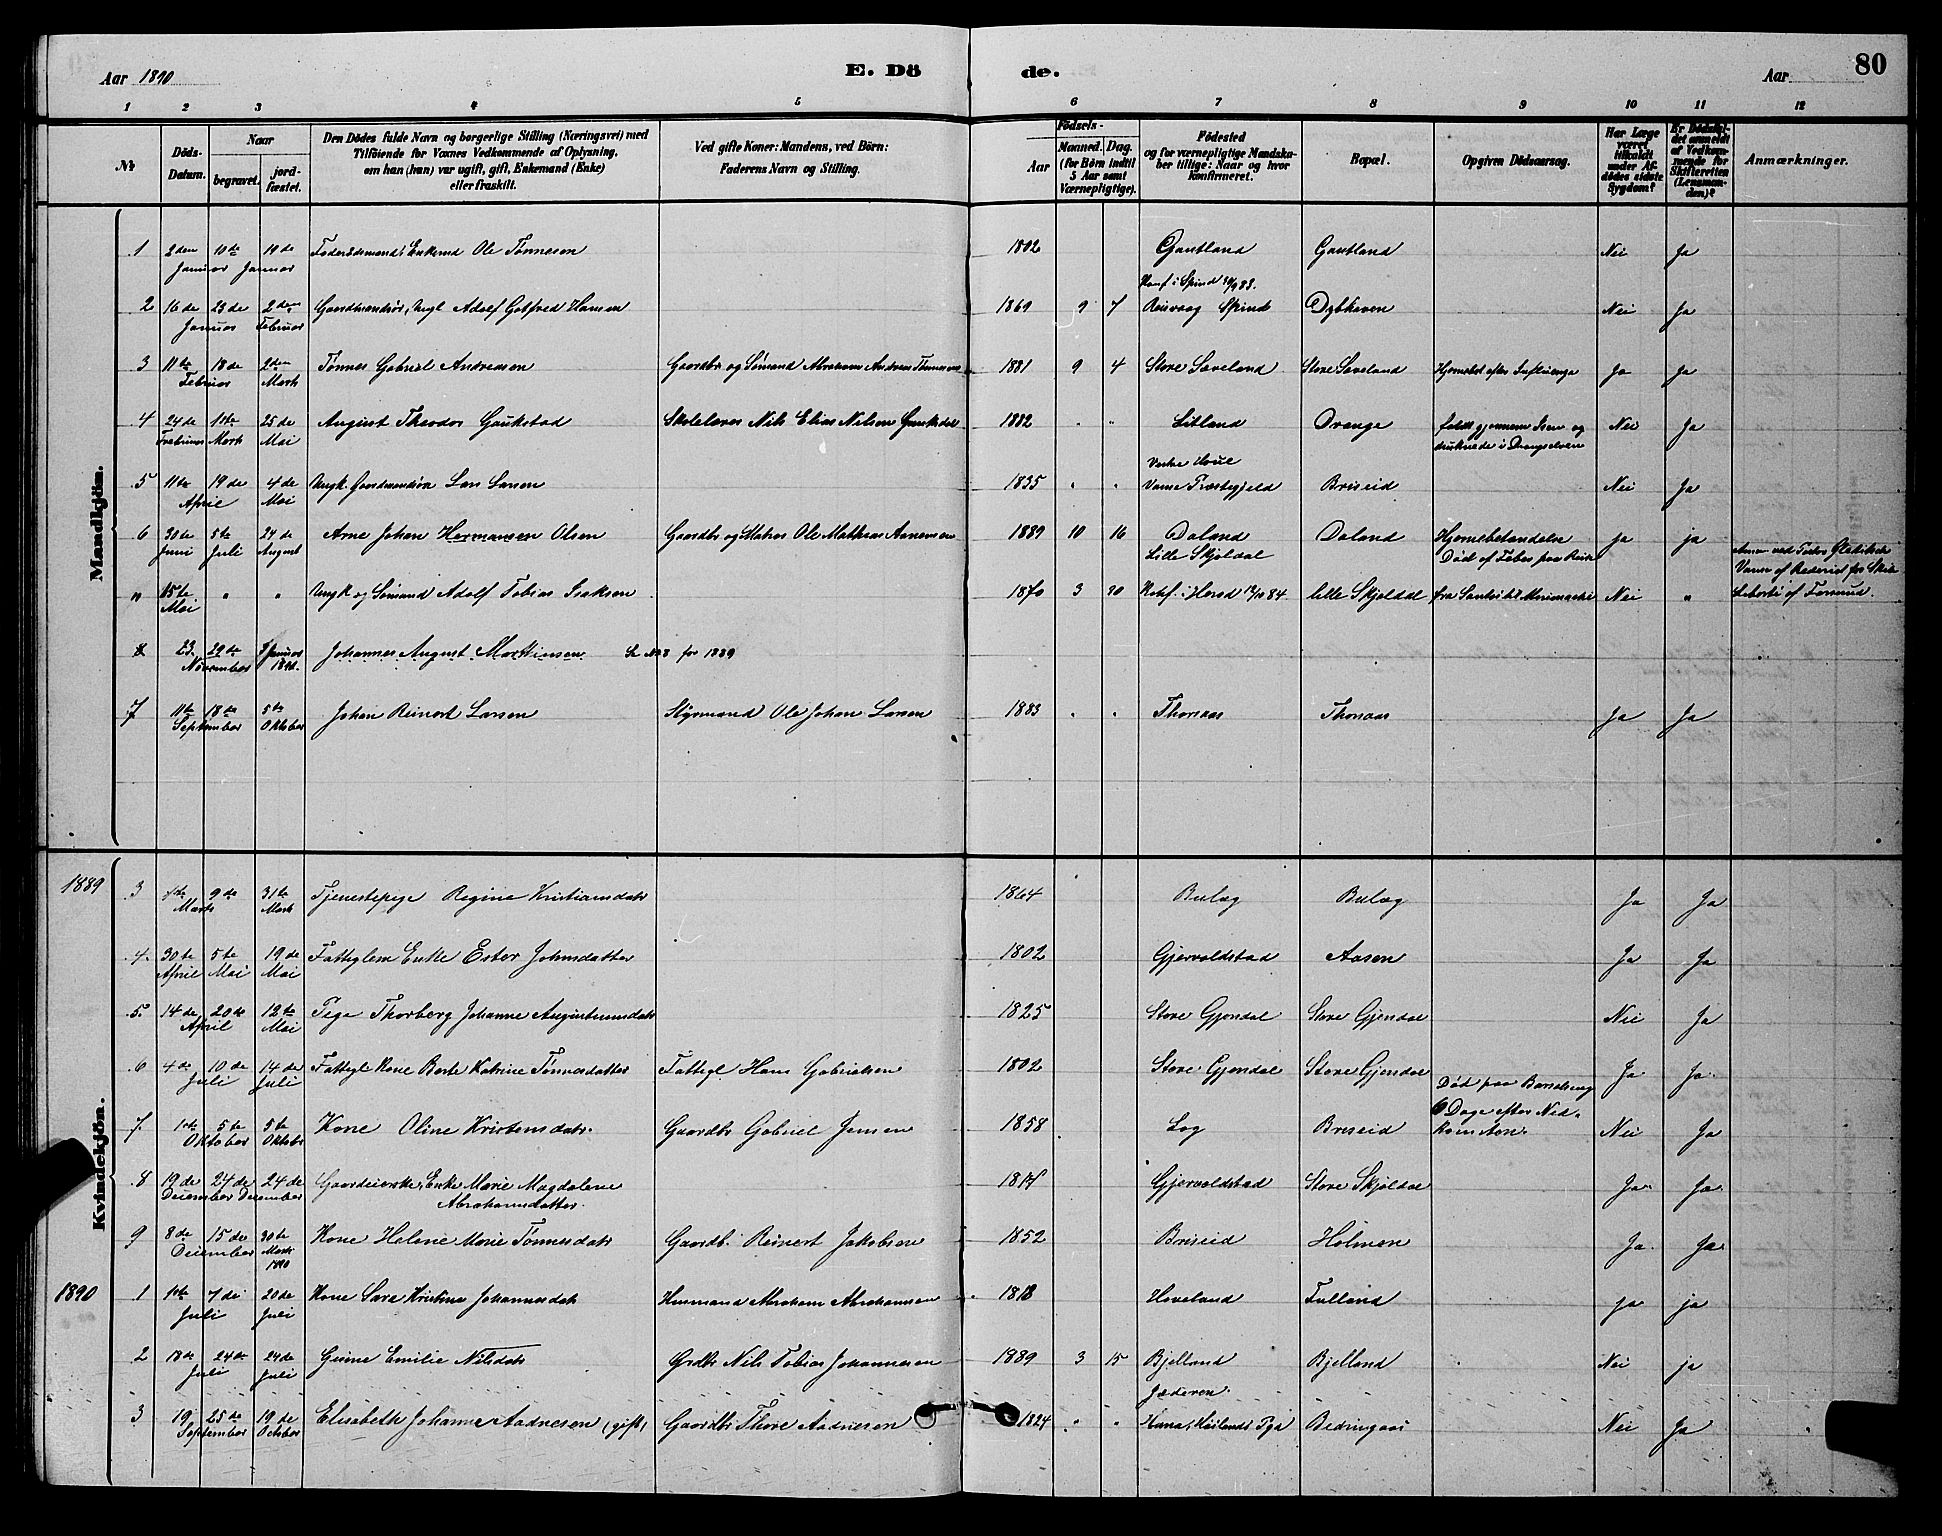 Aar 1890
E. Dö
de.
Aar
80
1 2 3 4 5 6 7 8 9 10 11 12
No
Döds-
Datum.
Naar
begravet.
jord-
fæstet.
Den Dödes fulde Navn og borgerlige Stilling (Næringsvei) med
Tilföiende for Voxnes Vedkommende af Oplysning,
om han (hun) var ugift, gift, Enkemand (Enke)
eller fraskilt.
Ved gifte Koner: Mandens, ved Börn:
Faderens Navn og Stilling.
Födsels-
Aar
Maaned. Dag.
(for Börn indtil
5 Aar samt
Værnepligtige).
Födested
og for værnepligtige Mandska-
ber tillige: Naar og hvor
konfirmeret.
Bopæl.
Opgiven Dödsaarsag.
Har Læge
været
tilkaldt
under Af-
dödes sidste
Sygdom?
Er Dödsfal-
det anmeldt
af Vedkom-
mende for
Skifteretten
(Lensman-
den)?
Anmærkninger.
Mandkjön.
1 2den Januar 10de 19de Januar Ole Tønnesen 1802 Gautland Gautland Nei Ja
Konf i Spind
2 16de Januar 23de 2den Februar Gaardmandssøn, Ungk Adolf Gotfred Hansen 1869 9 7 Spind Dybhaven Nei Ja
3 11te Februar 18de 2den Marts Tønnes Gabriel Andreasen Gaardbr og Sømand Abraham Andreas Tønnesen 1881 9 4 Store Saveland Store Saveland efter Influenza Ja Ja
4 24de Februar 1ste Marts 25de Mai August Theodor Gaukstad Skolelærer Nils Elias Nilsen Gaukstad 1882 " " Litland Drange faldt gjennem Isen og Nei Ja
druknede i Drangselven
5 11te April 19de 4de Mai Ungk. Gaardmandssøn Lars Larsen 1835 " " Vanse Præstegjeld Briseid Nei Ja
6 30te Juni 5te Juli 24de August Arne Johan Hermansen Olsen Gaardbr og Matros Ole Mathias Aanensen 1889 10 16 Daland Daland Hjernebetændelse ja ja
Lille Skjoldal Død af Feber paa Reise
15te Mai " " Ungk og Sømand Adolf Tobias Isaksen 1870 3 20 Konf. i Herad 12/10 84 lille Skjoldal fra Nei "
8 23. November 29de Januar 1890. Johannes August Martinsen Se No 8 for 1889
7 11te September 18de 5te Oktober Johan Reinert Larsen Styrmand Ole Johan Larsen 1883 " " Thonaas Thonaas Ja Ja
Kvindekjön.
1889 3 Marts 9de 31te Marts Tjenestepige Regine Kristiansdatr 1864 Bulæg Bulæg Ja Ja
4. 30te April 5te Mai 19de Mai Fattiglem Enke Ester Johnsdatter 1802 Gjervoldstad Aasen Ja Ja
5. 14de April 20de 12te Mai Pige Thorberg Johanne Augustinusdatr 1825 Store Gjendal Store Gjendal Nei Ja
6 4de Juli 10de 14de Juli Fattigl Kone Berte Katrine Tønnesdatter Fattigl Hans Gabrielsen 1802 Store Gjendal Store Gjendal Ja Ja
Død paa Barselseng
6 Dage efter Ned-
7. 1ste Oktober 5te 5te Oktobr Kone Oline Kristensdatr. Gaardbr Gabriel Jensen 1858 Log Briseid komsten. Nei Ja
8 19de December 24de 24de December Gaardeierske, Enke Marie Magdalene Gjervoldstad Store Skjoldal Ja Ja
Abrahamsdatter.
9 8de December 15de 30te Marts 1890 Kone Helene Marie Tønnesdatr Gaardb. Reinert Jakobsen 1852 Briseid Holmen Ja Ja
1890 1 1ste Juli 7de 20de Juli Kone Sara Kristine Johannesdatr Husmand Abraham Abrahamsen 1818 Hoveland Fulland ja ja
2 18de Juli 24de 24de Juli Gunne Emilie Nilsdatr Grdbr Nils Tobias Johannesen 1889 3 15 Bjelland Bjelland Nei ja
Jæderen.
3 19 September 25de 19de October Elisabeth Johanne Aadnesen (gift) Gaardbr Thore Aadnesen 1824 " " Hana, Høilands Pgd Bedringaas Nei Ja